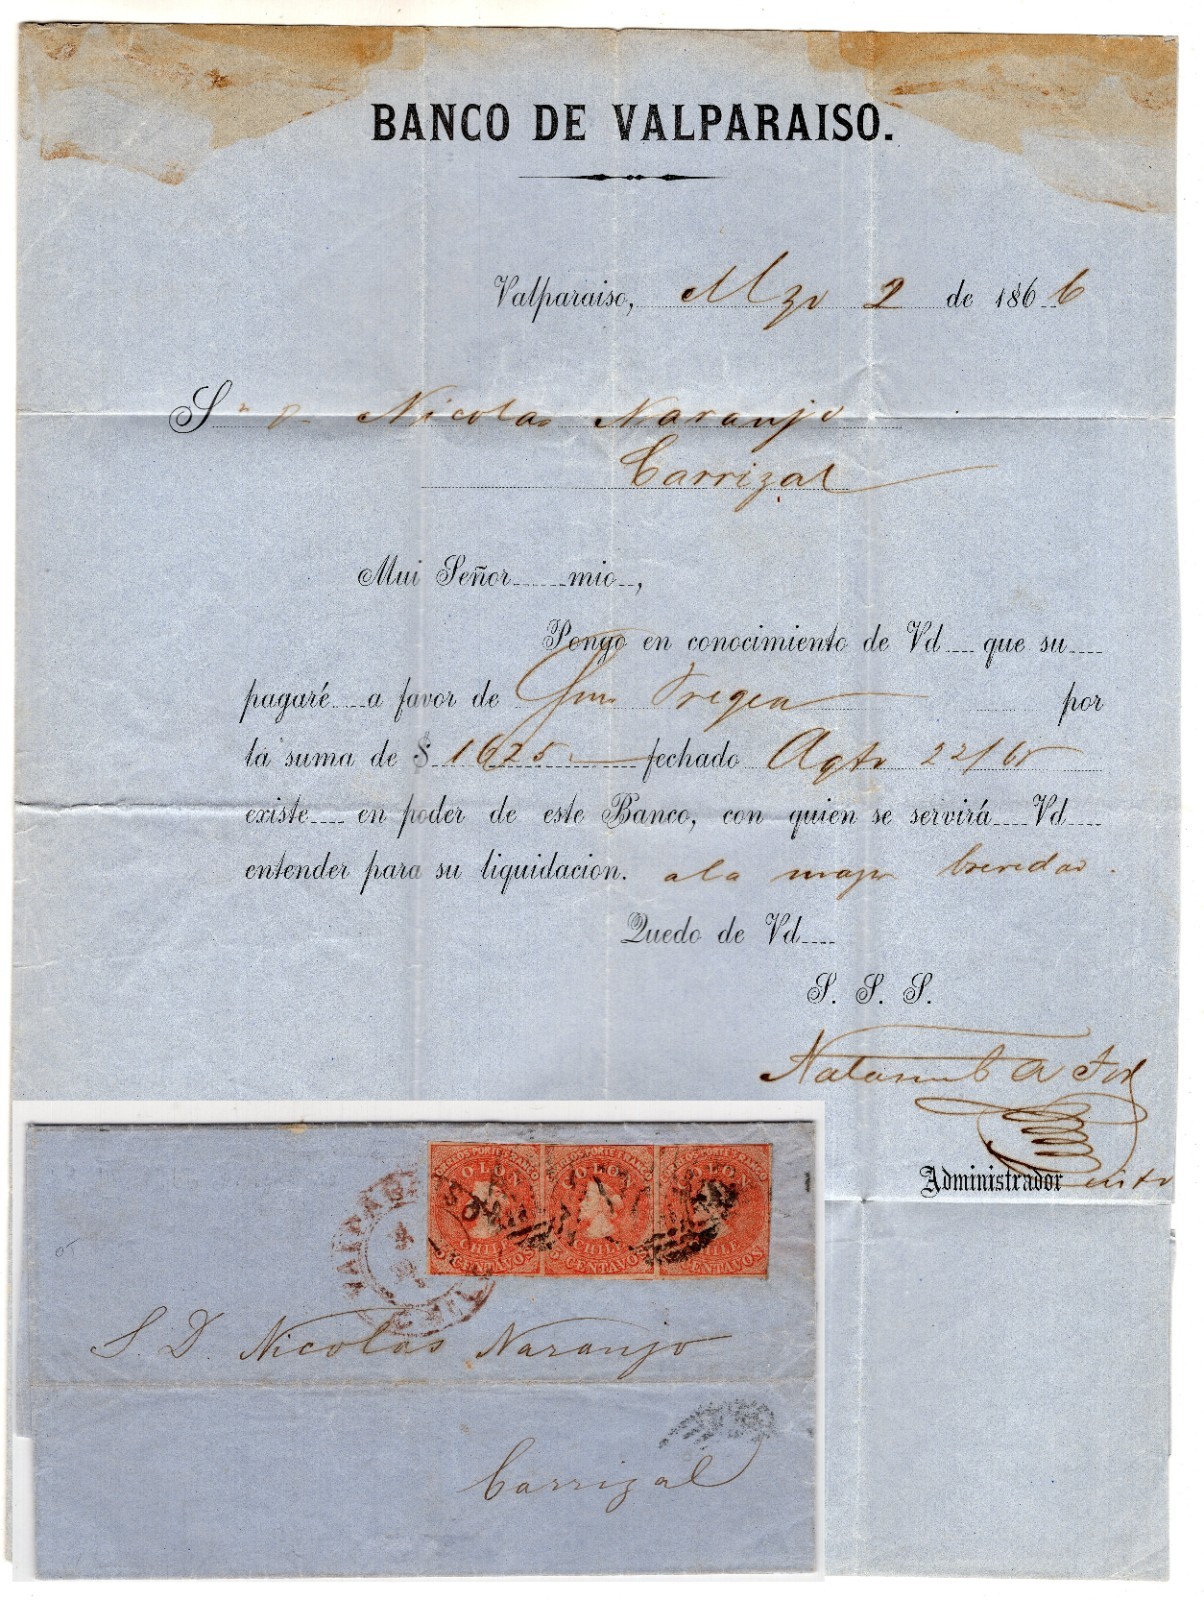 BANCO DE VALPARAISO.
Valparaiso, Mzo 2 de 1866
Sr. D. Nicolas Naranjo
Carrizal
Mui Señor mio,
Pongo en conocimiento de Vd que su
pagaré a favor de por
la suma de $ 1625 fechado Agto 22/65
existe en poder de este Banco, con quien se servirá Vd
entender para su liquidacion. a la mayr brevedad.
Quedo de Vd
S. S. S.
Administrador
COLON COLON COLON
CHILE CHILE CHILE
5 CENTAVOS 5 CENTAVOS 5 CENTAVOS
S. D. Nicolas Naranjo
Carrizal